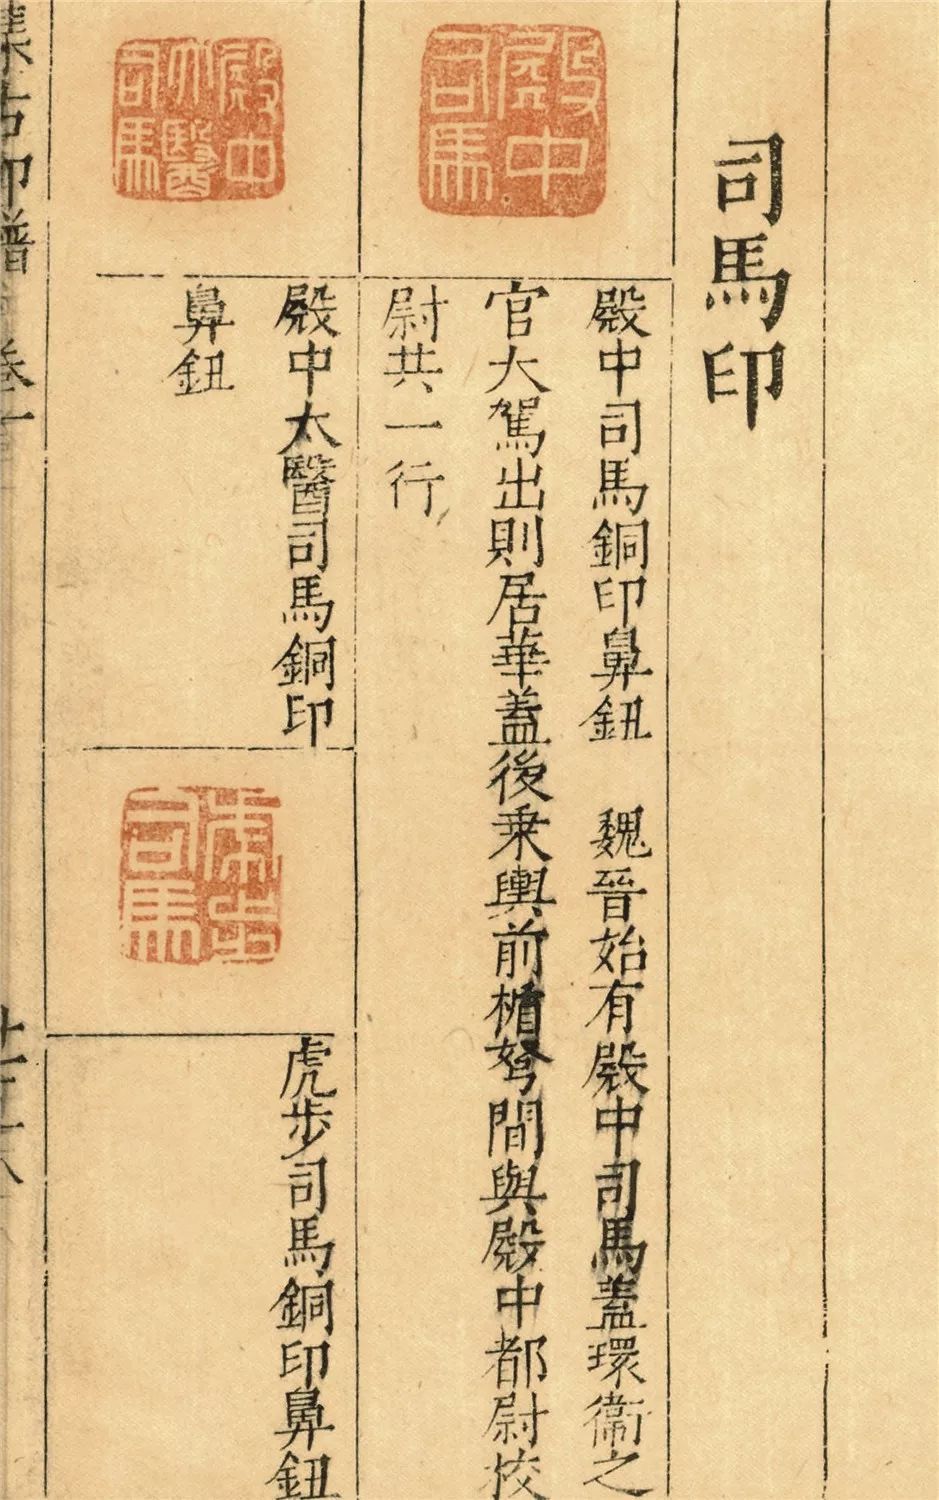 司馬印
殿中司馬
殿中司馬銅印鼻鈕　魏晉始有殿中司馬蓋環衛之
官大駕出則居華蓋後乗輿前楯弩間與殿中都尉校
尉共一行
殿中太醫司馬
殿中太醫司馬銅印
鼻鈕
虎步司馬
虎步司馬銅印鼻鈕
集古印譜
卷一